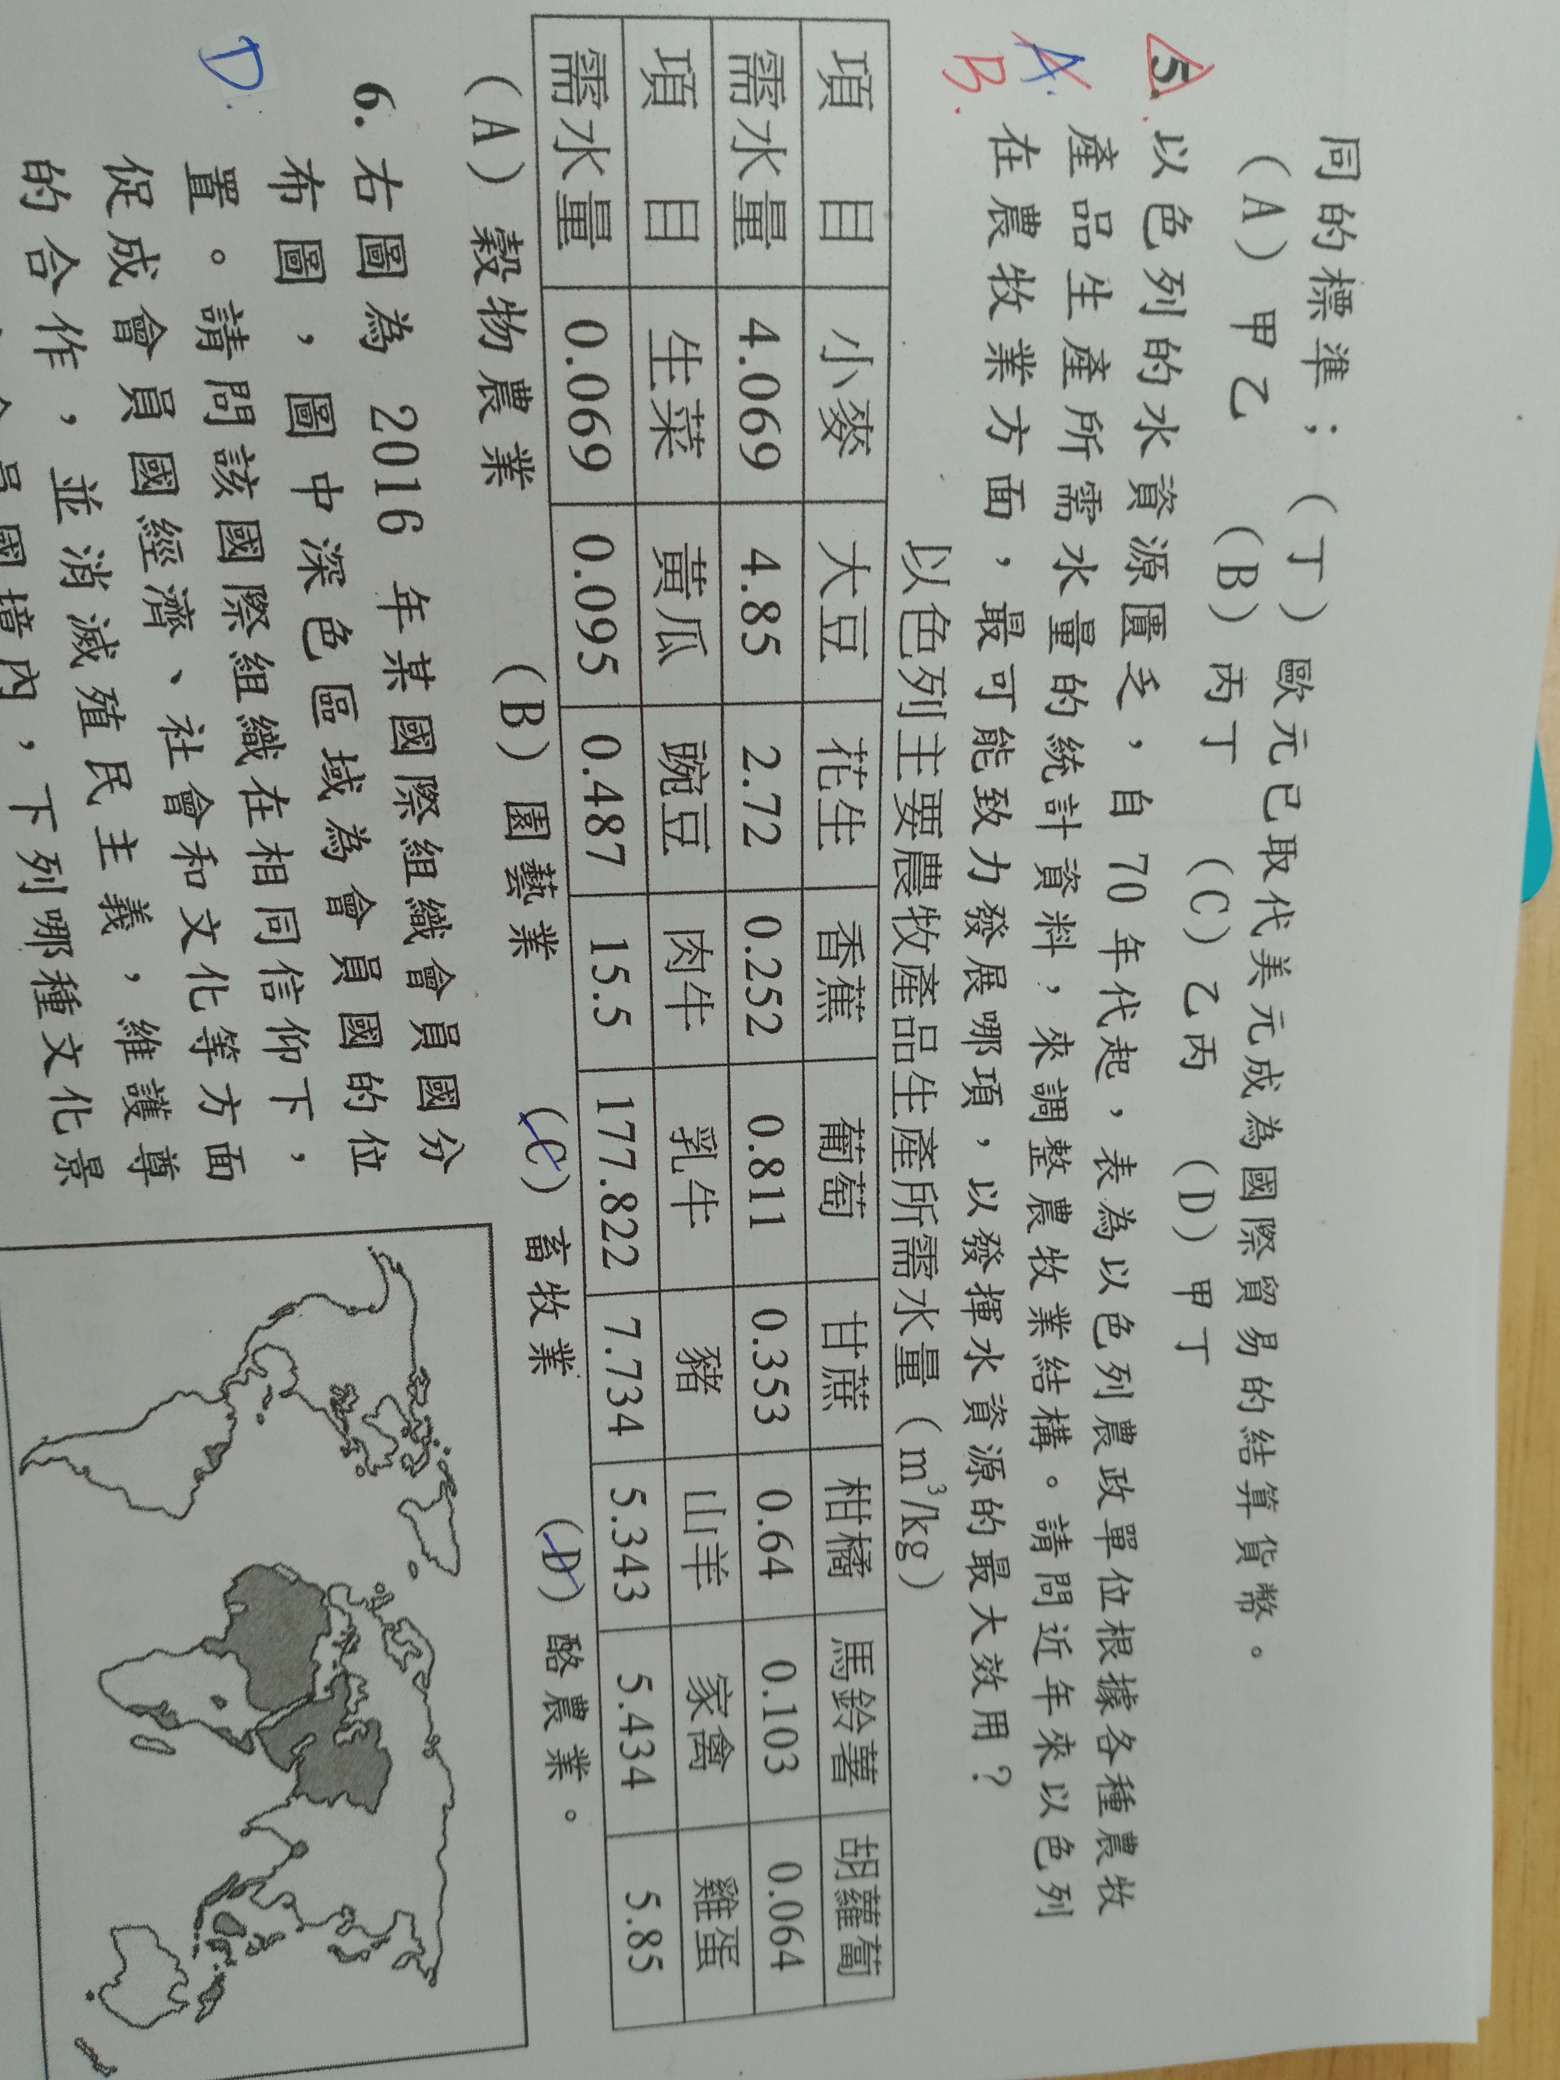 同的標準；（丁）歐元已取代美元成為國際貿易的結算貨幣。
（A）甲乙 （B）丙丁 （C）乙丙 （D）甲丁
5. 以色列的水資源匱乏，自 70 年代起，表為以色列農政單位根據各種農牧
A. 產品生產所需水量的統計資料，來調整農牧業結構。請問近年來以色列
B. 在農牧業方面，最可能致力發展哪項，以發揮水資源的最大效用？
以色列主要農牧產品生產所需水量（m³/kg）
項目 小麥 大豆 花生 香蕉 葡萄 甘蔗 柑橘 馬鈴薯 胡蘿蔔
需水量 4.069 4.85 2.72 0.252 0.811 0.353 0.64 0.103 0.064
項目 生菜 黃瓜 豌豆 肉牛 乳牛 豬 山羊 家禽 雞蛋
需水量 0.069 0.095 0.487 15.5 177.822 7.734 5.343 5.434 5.85
（A）穀物農業 （B）園藝業 （C）畜牧業 （D）酪農業。
6. 右圖為 2016 年某國際組織會員國分
布圖，圖中深色區域為會員國的位
D. 置。請問該國際組織在相同信仰下，
促成會員國經濟、社會和文化等方面
的合作，並消滅殖民主義，維護尊
員國境內，下列哪種文化景